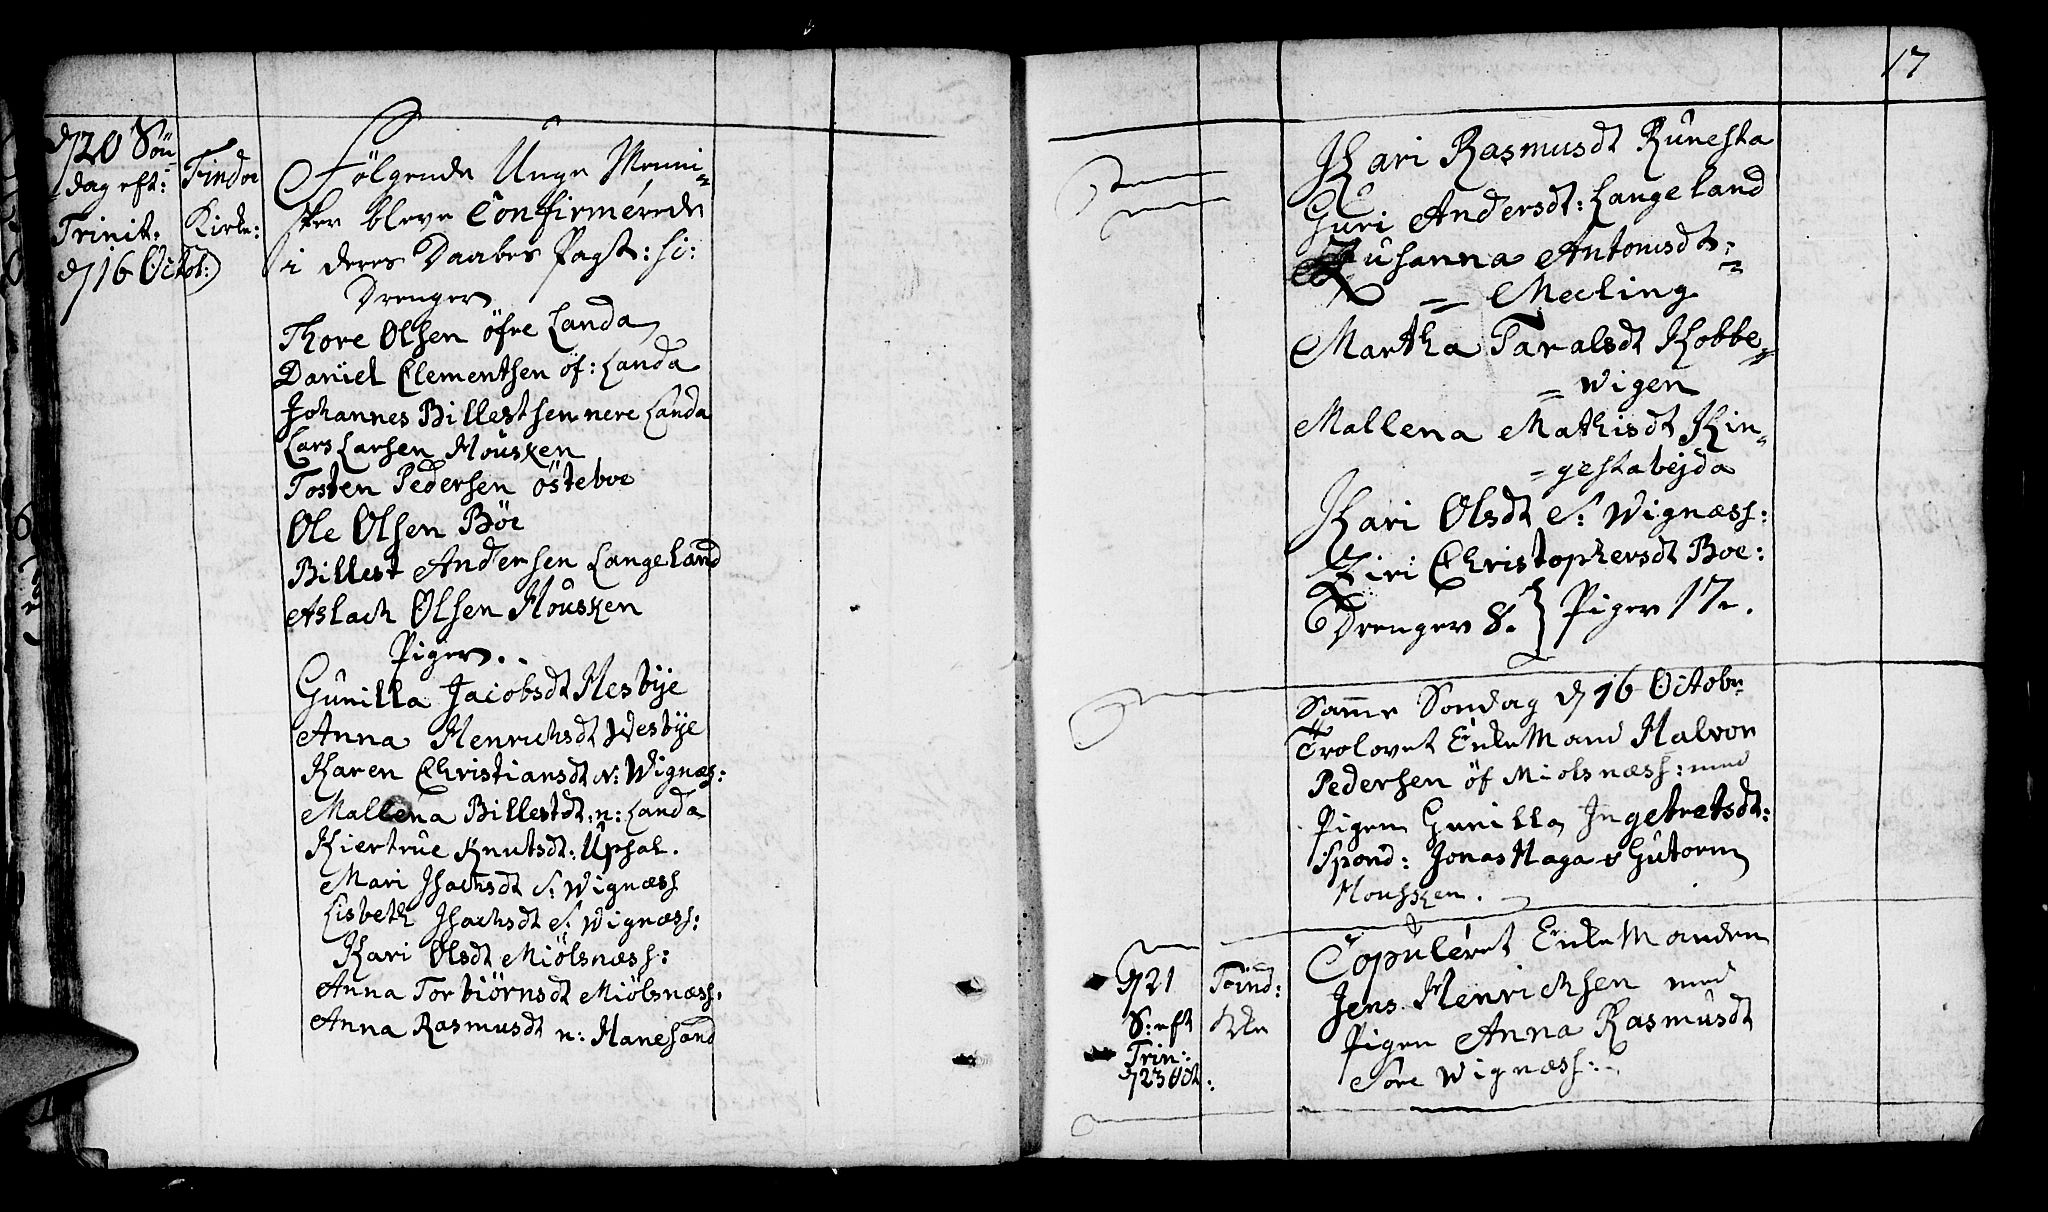 17
d 20 Sön-
dag eft:
Trinit:
d 16 Octob:
Findøe
Kirke:
Følgende Unge Menni-
sker bleve Confirmérede
i deres Daabes Pagt: sc:
Drenger
Thore Olsen öfre Landa
Daniel Clementsen öf: Landa
Johannes Billestsen nere Landa
Lars Larsen Housken
Tosten Pedersen östeboe
Ole Olsen Böe
Billest Andersen Langeland
Aslach Olsen Housken
Piger.
Gunilla Jacobsdt Hesbÿe
Anna Henrichsdt Wesbÿe
Karen Christiansdt N: Wignæs:
Malléna Billestdt: n: Landa
Kiertrue Knutsdt: Uphal.
Mari Isachsdt S: Wignæss
Lisbeth Isachsdt S: Wignæss:
Kari Olsdt Miölsnæss:
Anna Torbiörnsdt Miölsnæss:
Anna Rasmusdt n: Hanesand
Kari Rasmusdt Runesta
Guri Andersdt: Langeland
Zusanna Antonisdt:
= Meeling
Martha Taralsdt Kobbe=
= wigen
Mallena Mathisdt Kin=
= gestabejda
Kari Olsdt S: Wignæss:
Ziri Christophersdt Boe:
Drenger 8. } Piger 17.
Samme Sondag d 16 Octobr
Trolovet EnkeMand Halvor
Pedersen öf Miolsnæss: med
Pigen Gunilla Ingebretsdt:
Spond: Jonas Haga & Gutorm
Housken.
d 21
S: eft
Trin:
d 23 Oct:
Find:
Kke
Copuléret EnkeManden
Jens Henrichsen med
Pigen Anna Rasmusdt
Søre Wignæss: